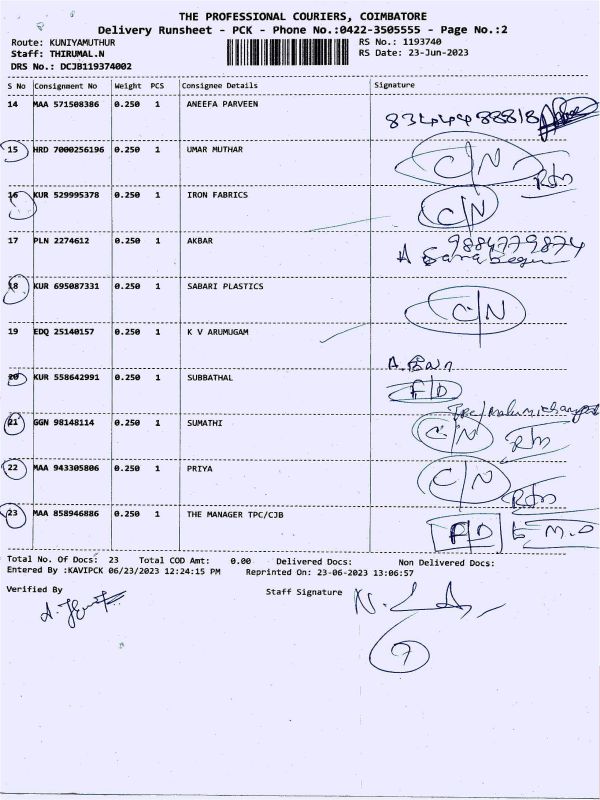 THE PROFESSIONAL COURIERS, COIMBATORE
Delivery Runsheet - PCK - Phone No.:0422-3505555 - Page No.:2
Route: KUNIYAMUTHUR RS No.: 1193740
Staff: THIRUMAL.N RS Date: 23-Jun-2023
DRS No.: DCJB119374002
S No Consignment No Weight PCS Consignee Details Signature
14 MAA 571508386 0.250 1 ANEEFA PARVEEN
15 HRD 7000256196 0.250 1 UMAR MUTHAR C/N
16 KUR 529995378 0.250 1 IRON FABRICS C/N
17 PLN 2274612 0.250 1 AKBAR 9884779874
18 KUR 695087331 0.250 1 SABARI PLASTICS C/N
19 EDQ 25140157 0.250 1 K V ARUMUGAM
20 KUR 558642991 0.250 1 SUBBATHAL F/D
21 GGN 98148114 0.250 1 SUMATHI C/N
22 MAA 943305806 0.250 1 PRIYA C/N
23 MAA 858946886 0.250 1 THE MANAGER TPC/CJB F/D
Total No. Of Docs: 23 Total COD Amt: 0.00 Delivered Docs: Non Delivered Docs:
Entered By :KAVIPCK 06/23/2023 12:24:15 PM Reprinted On: 23-06-2023 13:06:57
Verified By Staff Signature
7